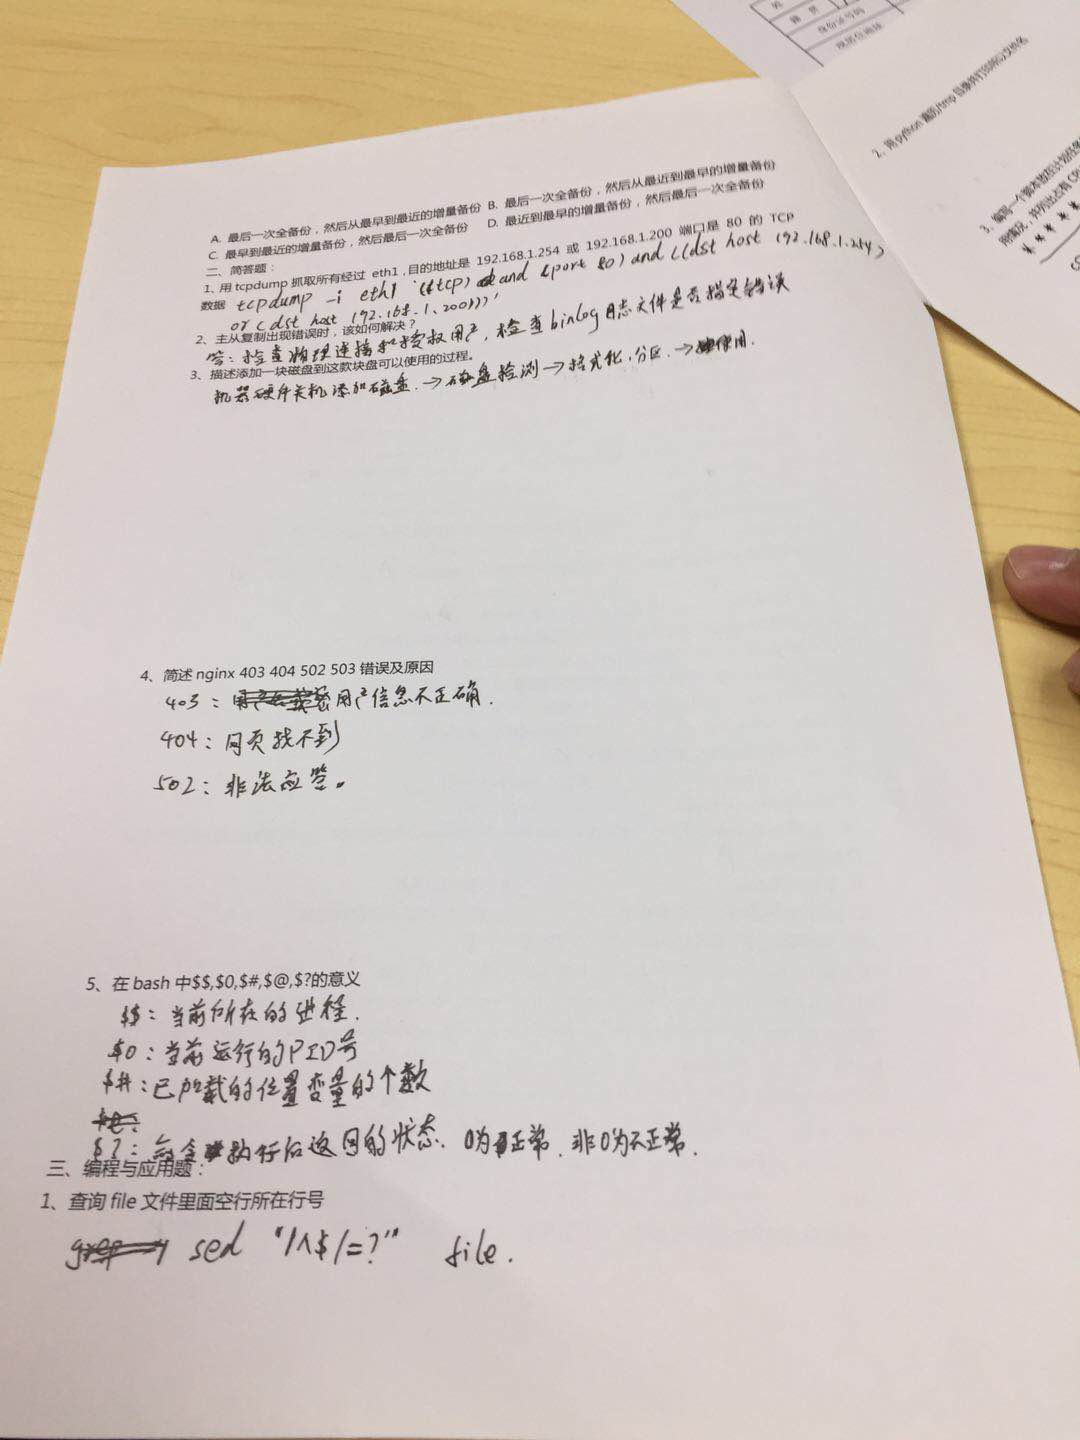 A. 最后一次全备份，然后从最早到最近的增量备份 B. 最后一次全备份，然后从最近到最早的增量备份
C. 最早到最近的增量备份，然后最后一次全备份 D. 最近到最早的增量备份，然后最后一次全备份
二、简答题：
1、用 tcpdump 抓取所有经过 eth1，目的地址是 192.168.1.254 或 192.168.1.200 端口是 80 的 TCP
数据 tcpdump -i eth1 '((tcp) and (port 80) and ((dst host 192.168.1.254)
or (dst host 192.168.1.200)))'
2、主从复制出现错误时，该如何解决？
答：检查物理连接和授权用户，检查binlog日志文件是否指定错误
3、描述添加一块磁盘到这款块盘可以使用的过程。
机器硬件关机添加磁盘.→磁盘检测→格式化,分区.→使用.
4、简述 nginx 403 404 502 503 错误及原因
403：用户信息不正确.
404：网页找不到
502：非法应答。
5、在 bash 中$$,$0,$#,$@,$?的意义
$$：当前所在的进程.
$0：当前运行的PID号
$#：已加载的位置变量的个数
$?：命令执行后返回的状态. 0为正常. 非0为不正常.
三、编程与应用题：
1、查询 file 文件里面空行所在行号
sed "/^$/=?" file.
2、用 python 遍历/tmp 目录并打印所以文件名
3、编写一个脚本